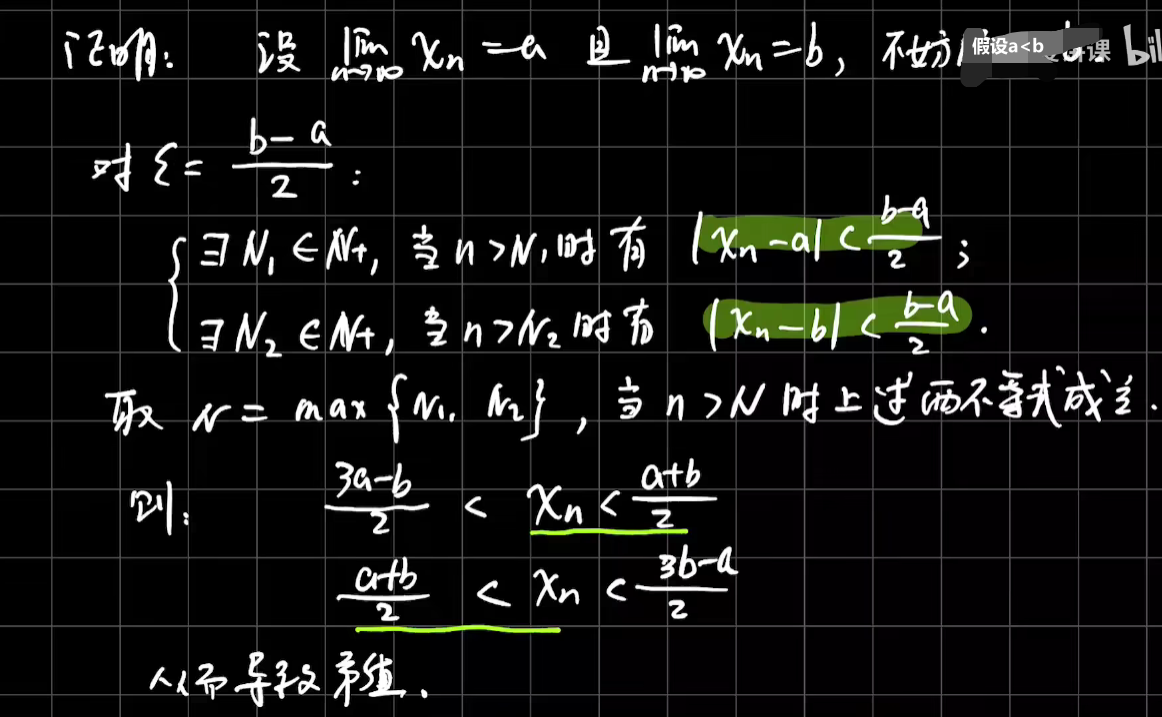 证明: 设 lim n→∞ xn = a 且 lim n→∞ xn = b, 不妨 假设a<b 课 bil
对 ε = (b-a)/2 :
{ ∃ N₁ ∈ N+, 当 n > N₁ 时有 |xn - a| < (b-a)/2 ;
∃ N₂ ∈ N+, 当 n > N₂ 时有 |xn - b| < (b-a)/2 .
取 N = max {N₁, N₂}, 当 n > N 时上述两不等式成立.
则: (3a-b)/2 < xn < (a+b)/2
(a+b)/2 < xn < (3b-a)/2
从而导致矛盾.